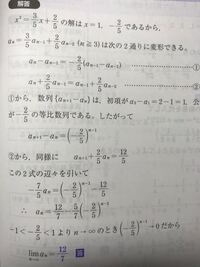 解答
x² = 3/5 x + 2/5 の解は x = 1, −2/5 であるから,
aₙ = 3/5 aₙ₋₁ + 2/5 aₙ₋₂ (n ≧ 3) は次の2通りに変形できる。
aₙ − aₙ₋₁ = −2/5 (aₙ₋₁ − aₙ₋₂) ……①
aₙ + 2/5 aₙ₋₁ = aₙ₋₁ + 2/5 aₙ₋₂ ……②
①から, 数列{aₙ₊₁ − aₙ}は, 初項が a₂ − a₁ = 2 − 1 = 1, 公
が −2/5 の等比数列である。したがって
aₙ₊₁ − aₙ = (−2/5)ⁿ⁻¹
②から, 同様に aₙ₊₁ + 2/5 aₙ = 12/5
この2式の辺々を引いて
−7/5 aₙ = (−2/5)ⁿ⁻¹ − 12/5
∴ aₙ = 12/7 − 5/7 (−2/5)ⁿ⁻¹
−1 < −2/5 < 1 より n→∞ のとき (−2/5)ⁿ⁻¹ → 0 だから
lim aₙ = 12/7 答
n→∞